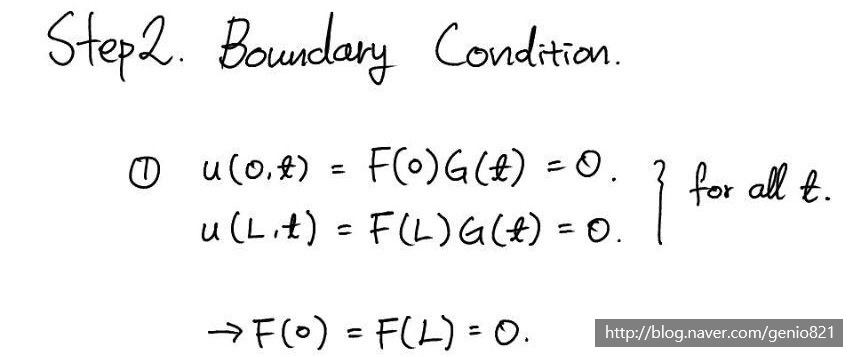 Step2. Boundary Condition.
① u(0,t) = F(0)G(t) = 0.
u(L,t) = F(L)G(t) = 0.
} for all t.
→ F(0) = F(L) = 0.
http://blog.naver.com/genio821